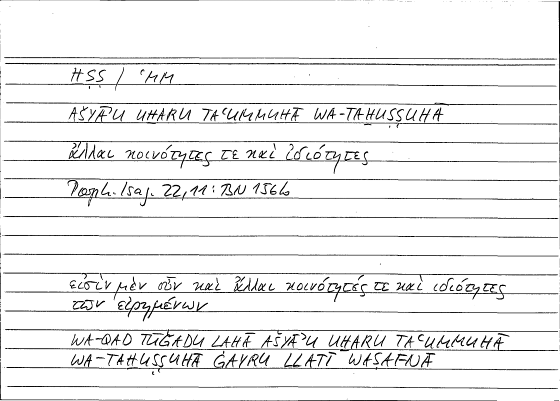 ḪṢṢ / ʿMM
AŠYĀʾU UḪARU TAʿUMMUHĀ WA-TAḪUṢṢUHĀ
ἄλλαι κοινότητές τε καὶ ἰδιότητες
Porph. Isag. 22,11: BN 156b
εἰσὶν μὲν οὖν καὶ ἄλλαι κοινότητές τε καὶ ἰδιότητες
τῶν εἰρημένων
WA-QAD TŪǦADU LAHĀ AŠYĀʾU UḪARU TAʿUMMUHĀ
WA-TAḪUṢṢUHĀ ĠAYRU LLATĪ WAṢAFNĀ